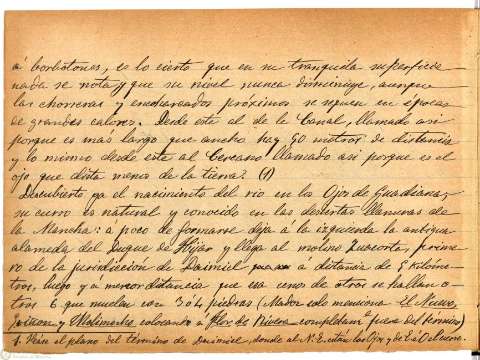 á borbotones, es lo cierto que en su tranquila superficie
nada se nota y que su nivel nunca diminuye, aunque
las chorreras y encharcados próximos se sequen en épocas
de grandes calores. Desde este al de la Canal, llamado así
porque es mas largo que ancho hay 90 metros de distancia
y lo mismo desde este al Cercano llamado así porque es el
ojo que dista menos de la tierra. (1)
Descubierto ya el nacimiento del rio en los Ojos de Guadiana,
su curso es natural y conocido en las desiertas llanuras de
la Mancha: á poco de formarse deja á la izquierda la antigua
alameda del Duque de Hijar y llega al molino Zuacorta, prime
ro de la jurisdicción de Daimiel á distancia de 6 kilóme
tros, luego y á menor distancia que esa unos de otros se hallan o
tros 6 que muelen con 3 ó 4 piedras (Madoz solo menciona El Nuevo,
y Molimocho colocando á Flor de Rivera completamte fuera del término)
1. Vean el plano del término de Daimiel, donde al N.E. están los Ojos y de E. á O. el curso.